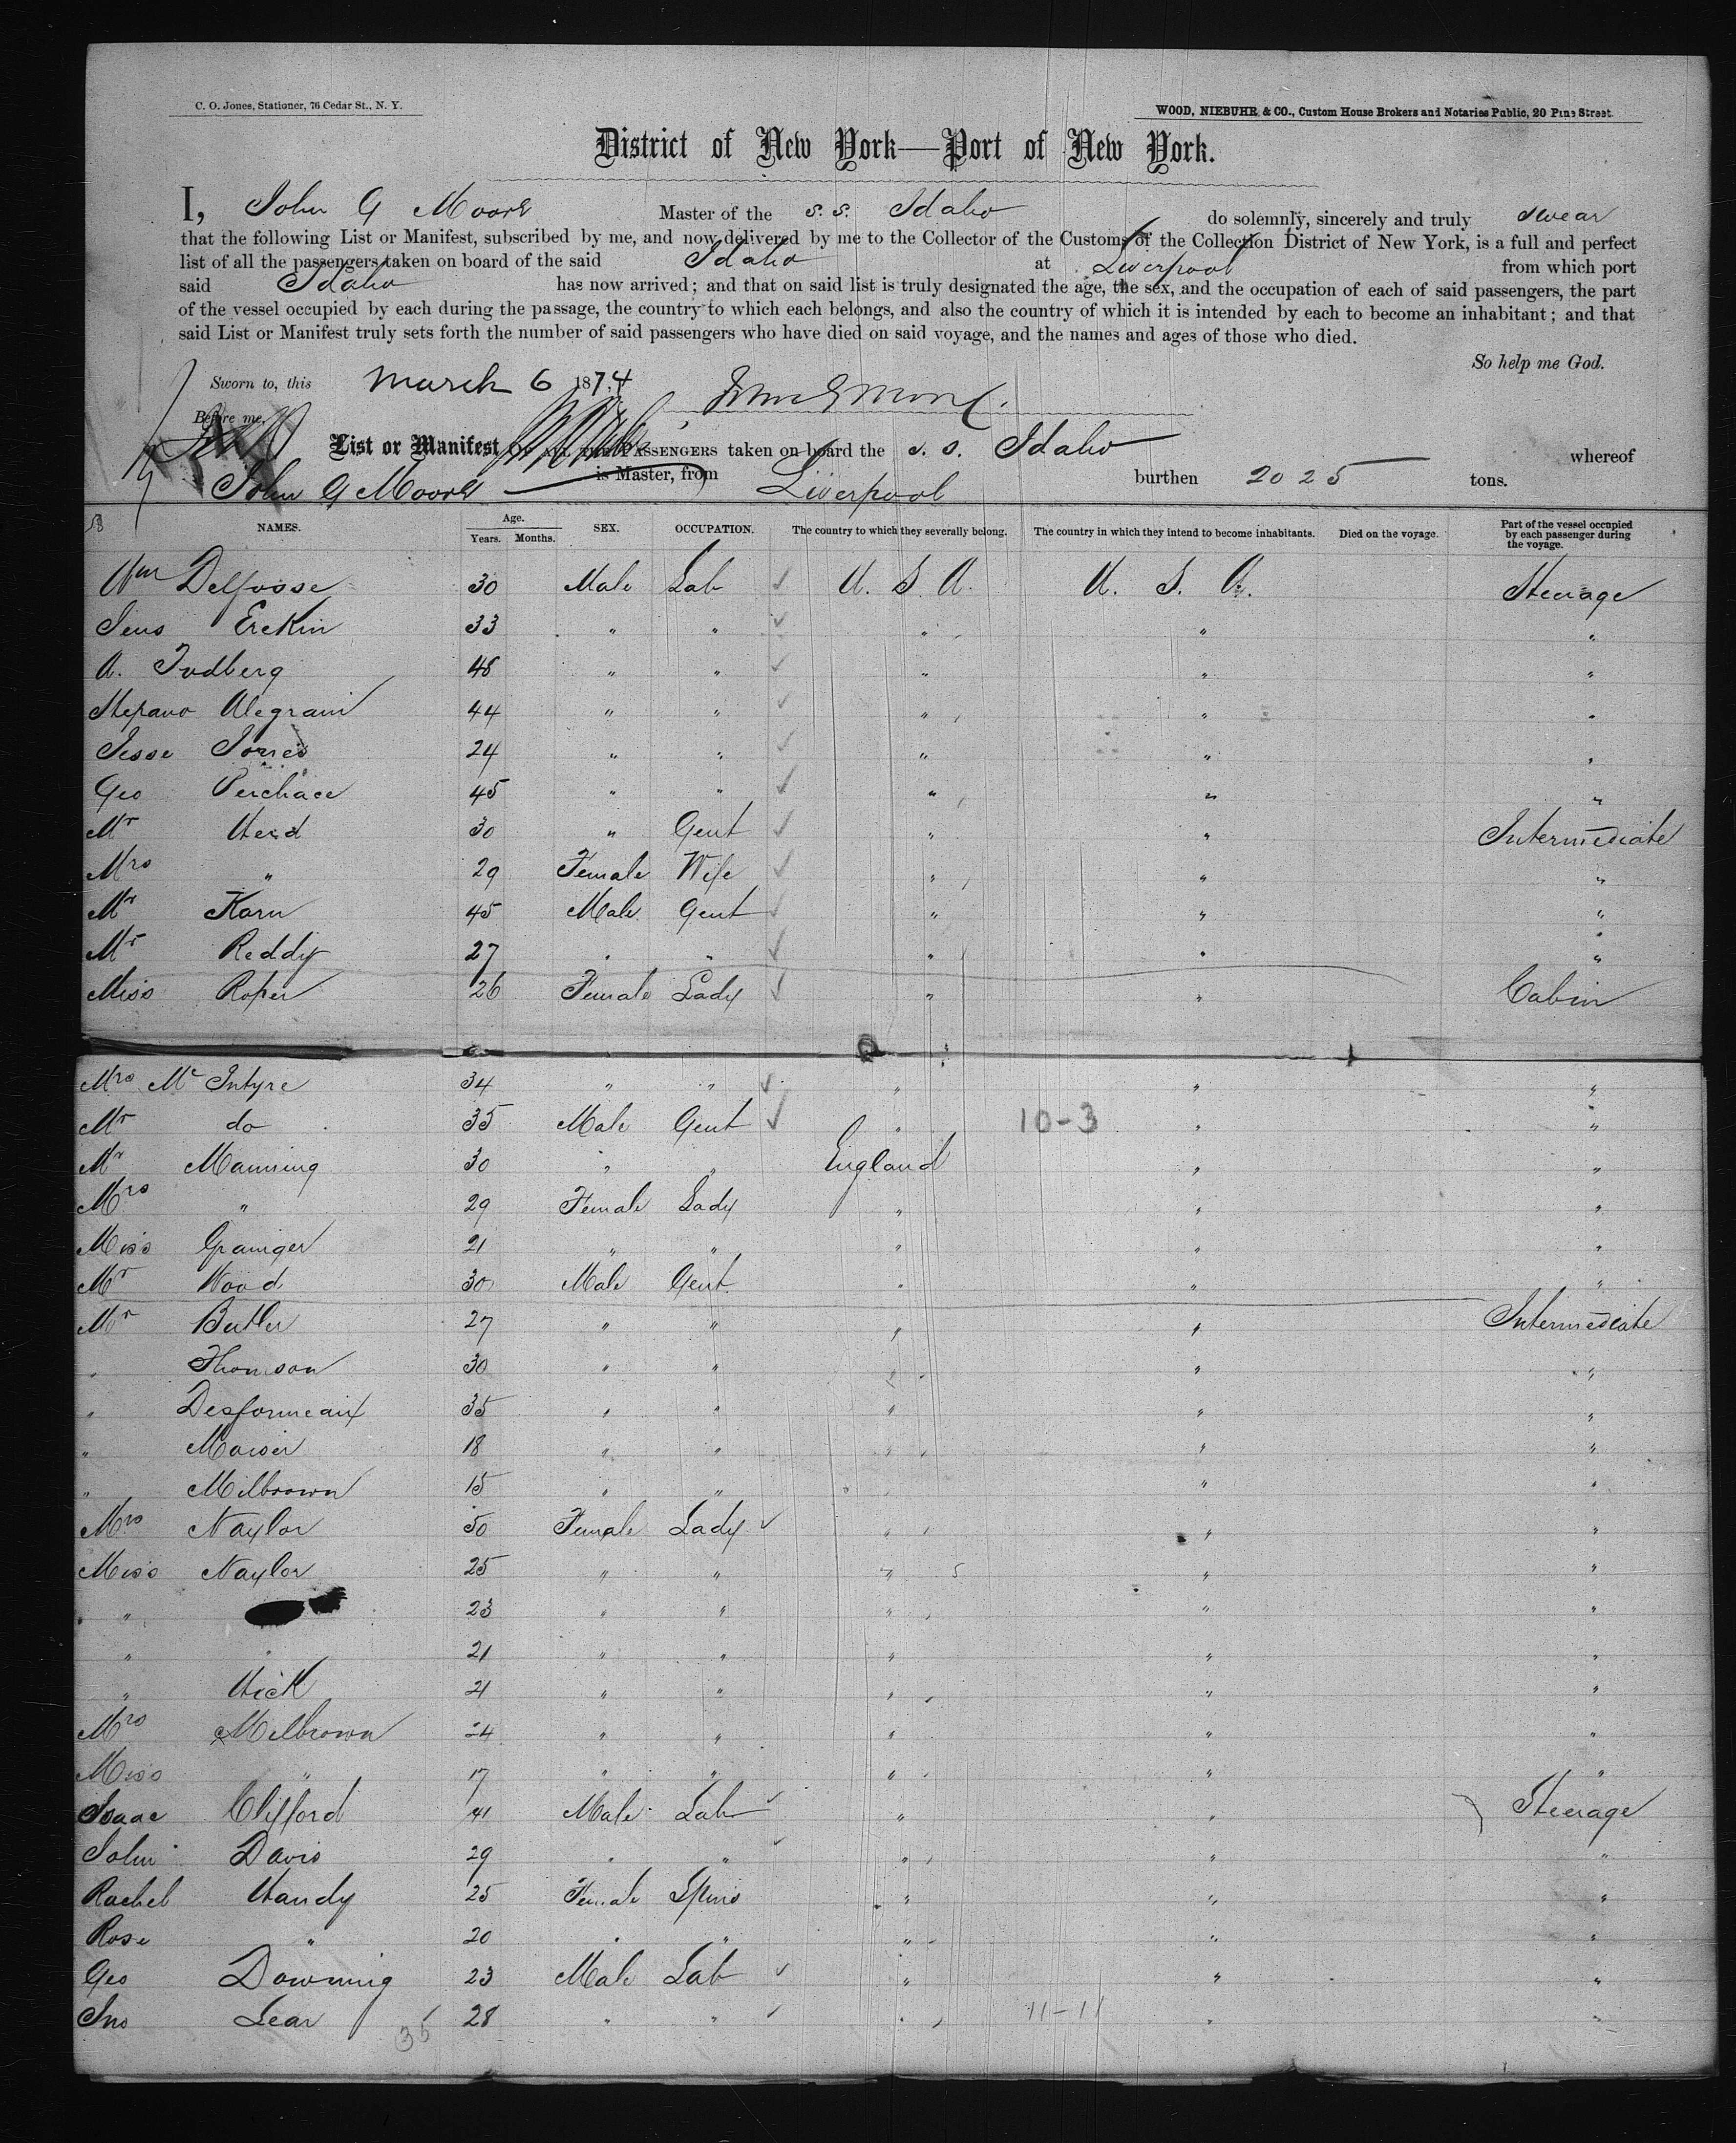 C. O. Jones, Stationer, 76 Cedar St., N. Y.
WOOD, NIEBUHR & CO., Custom House Brokers and Notaries Public, 20 Pine Street.
District of New York—Port of New York.
I, John G Moore Master of the S. S. Idaho do solemnly, sincerely and truly swear
that the following List or Manifest, subscribed by me, and now delivered by me to the Collector of the Customs of the Collection District of New York, is a full and perfect
list of all the passengers taken on board of the said Idaho at Liverpool from which port
said Idaho has now arrived; and that on said list is truly designated the age, the sex, and the occupation of each of said passengers, the part
of the vessel occupied by each during the passage, the country to which each belongs, and also the country of which it is intended by each to become an inhabitant; and that
said List or Manifest truly sets forth the number of said passengers who have died on said voyage, and the names and ages of those who died.
So help me God.
Sworn to, this March 6 1874
Before me,
List or Manifest OF ALL THE PASSENGERS taken on board the S. S. Idaho whereof
John G Moore is Master, from Liverpool burthen 2025 tons.
NAMES. Age. Years. Months. SEX. OCCUPATION. The country to which they severally belong. The country in which they intend to become inhabitants. Died on the voyage. Part of the vessel occupied by each passenger during the voyage.
Wm Delfosse 30 Male Lab U. S. A. U. S. A. Steerage
Jens Erekin 33 " " " " "
A. Todberg 48 " " " " "
Stefano Alegraini 44 " " " " "
Jesse Jones 24 " " " " "
Geo Perchace 45 " " " " "
Mr 30 " Gent " " Intermediate
Mrs " 29 Female Wife " " "
Mr Karn 45 Male Gent " " "
Mr Reddy 27 " " " " "
Miss Roper 26 Female Lady " " Cabin
Mrs Mc Intyre 34 " " " " "
Mr do 35 Male Gent " 10-3 " "
Mr Manning 30 " " England " "
Mrs " 29 Female Lady " " "
Miss Grainger 21 " " " " "
Mr Wood 30 Male Gent " " "
Mr Butler 27 " " " " Intermediate
" Thomson 30 " " " " "
" Desformeaux 35 " " " " "
" 18 " " " " "
" Milbrown 15 " " " " "
Mrs Naylor 50 Female Lady " " "
Miss Naylor 25 " " " " "
" 23 " " " " "
" " 21 " " " " "
" Hick 21 " " " " "
Mrs Milbrown 24 " " " " "
Miss " 17 " " " " "
Isaac Clifford 41 Male Lab " " Steerage
John Davis 29 " " " " "
Rachel Handy 25 Female Spins " " "
Rose " 20 " " " " "
Geo Downing 23 Male Lab " " "
Jno Lear 28 " " " 11-11 " "
35